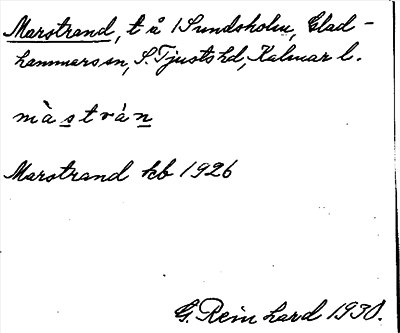 Marstrand, t å 1 Sundsholm, Glad-
hammars sn, S. Tjusts hd, Kalmar l.
màstván
Marstrand kb 1926
G. Reinhard 1930.